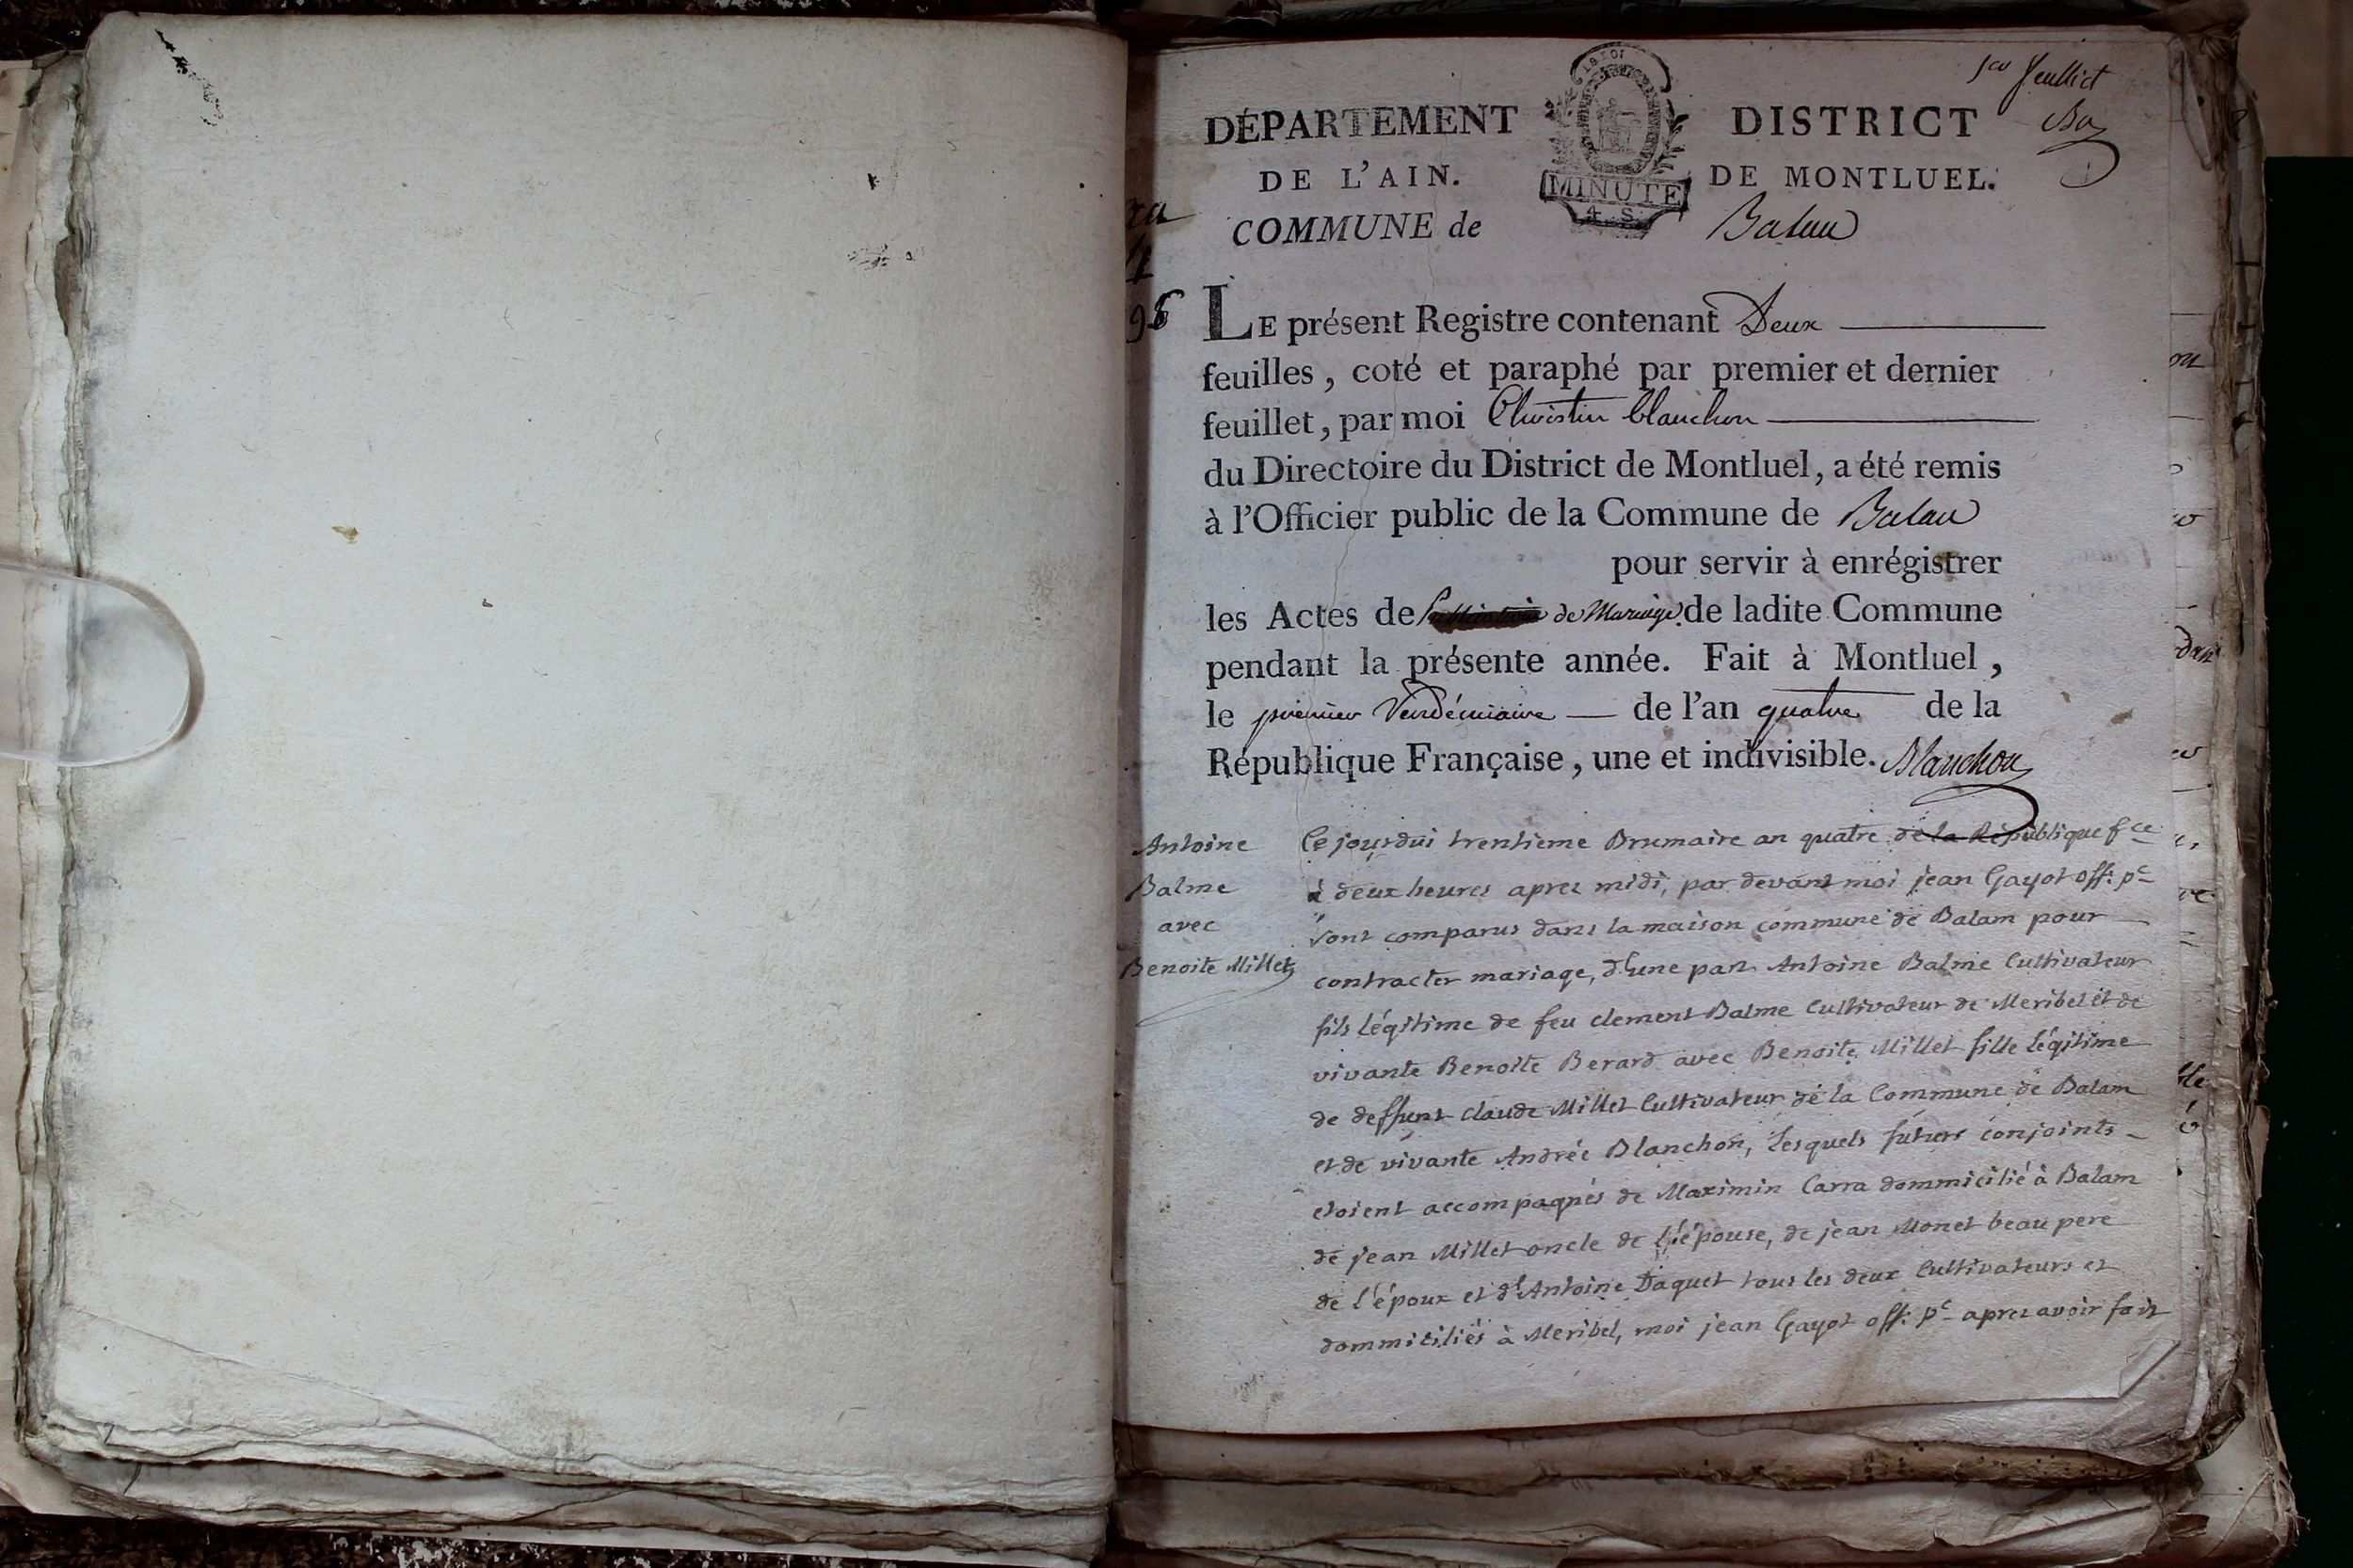 1er feuillet
DÉPARTEMENT DISTRICT
DE L'AIN. DE MONTLUEL.
MINUTE
4. S.
COMMUNE de Balan
LE présent Registre contenant Deux
feuilles, coté et paraphé par premier et dernier
feuillet, par moi Christin blanchon
du Directoire du District de Montluel, a été remis
à l'Officier public de la Commune de Balan
pour servir à enrégistrer
les Actes de de Mariage de ladite Commune
pendant la présente année. Fait à Montluel,
le premier Vendémiaire — de l'an quatre de la
République Française, une et indivisible. Blanchon
Antoine
Balme
avec
Benoite Millet
Ce jourdui trentieme Brumaire an quatre de la République fce
à deux heures apres midi, par devant moi jean Gayot off: pc
sont comparus dans la maison commune de Balam pour
contracter mariage, d'une part Antoine Balme Cultivateur
fils légitime de feu clement Balme Cultivateur de Meribel et de
vivante Benoite Berard avec Benoite Millet fille légitime
de deffunt claude Millet Cultivateur de la Commune de Balam
et de vivante Andrée Blanchon, Lesquels futurs conjoints
etoient accompagnés de Maximin Carra dommicilié à Balam
de jean Millet oncle de l'épouse, de jean Monet beau pere
de l'époux et d'Antoine Daquet tous les deux Cultivateurs et
dommiciliés à Meribel, moi jean Gayot off: pc apres avoir fait